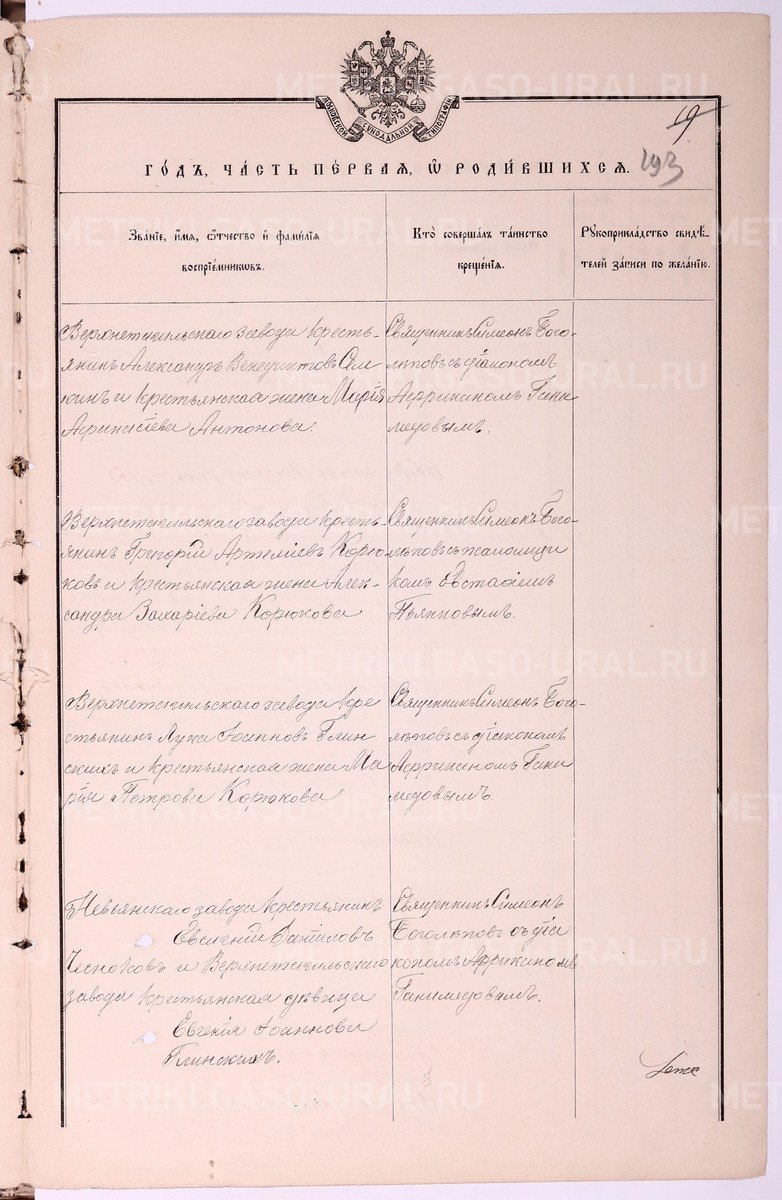 METRIKI.GASO-URAL.RU
МОСКОВСКОЙ СѴНОДАЛЬНОЙ ТИПОГРАФІИ
19
193
ГОДЪ, ЧАСТЬ ПЕРВАЯ, Ѡ РОДИВШИХСЯ.
Званіе, имя, отчество и фамилія
воспріемниковъ.
Кто совершалъ таинство
крещенія.
Рукоприкладство свидѣ-
телей записи по желанію.
Верхнетагильскаго завода кресть-
янинъ Александръ Венедиктовъ Сем
кинъ и крестьянская жена Марія
Афанасіева Антонова.
Священникъ Симеонъ Бого-
лѣповъ съ діакономъ
Африканомъ Гани
медовымъ.
Верхнетагильскаго завода кресть-
янинъ Григорій Артеміевъ Корю-
ковъ и крестьянская жена Алек-
сандра Захаріева Корюкова
Священникъ Симеонъ Бого-
лѣповъ съ псаломщи
комъ Евстафіемъ
Пьянковымъ.
Верхнетагильскаго завода кре
стьянинъ Лука Іоанновъ Глин
скихъ и крестьянская жена Ма
рія Петрова Корюкова
Священникъ Симеонъ Бого-
лѣповъ съ діакономъ
Африканомъ Гани
медовымъ.
Невьянскаго завода крестьянинъ
Евгеній Даніиловъ
Чесноковъ и Верхнетагильскаго
завода крестьянская дѣвица
Евгенія Іоаннова
Глинскихъ.
Священникъ Симеонъ
Боголѣповъ съ діа
кономъ Африканомъ
Ганимедовымъ.